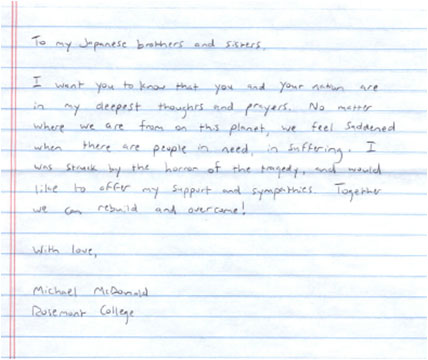 To my Japanese brothers and sisters,
I want you to know that you and your nation are
in my deepest thoughts and prayers. No matter
where we are from on this planet, we feel saddened
when there are people in need, in suffering. I
was struck by the horror of the tragedy, and would
like to offer my support and sympathies. Together
we can rebuild and overcome!
With love,
Michael McDonald
Rosemont College